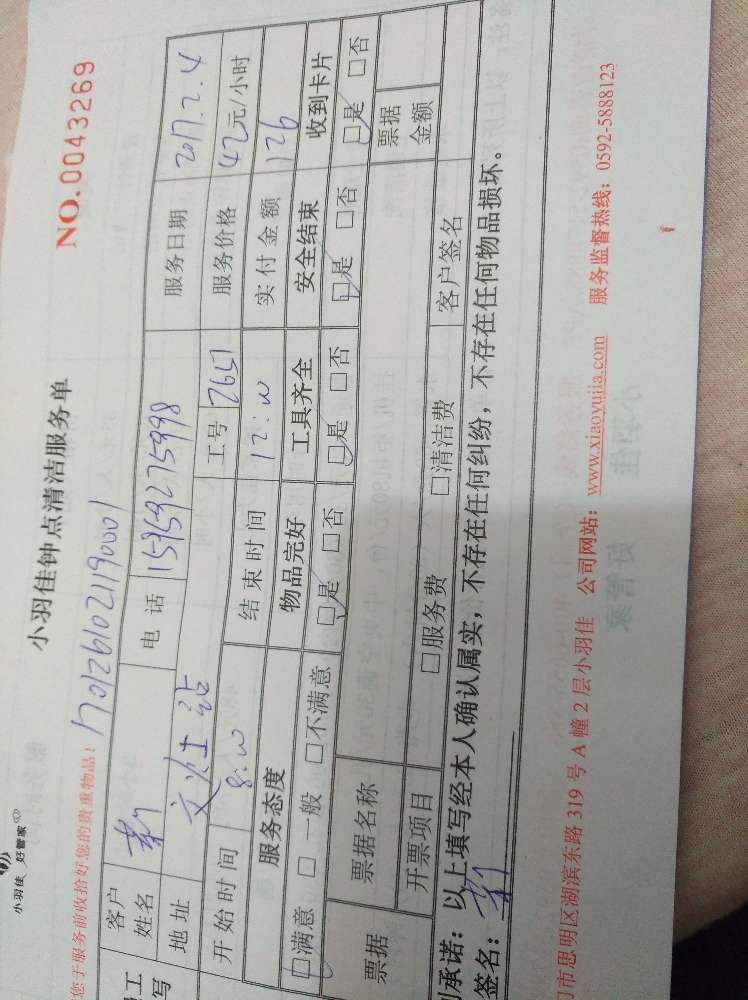 小羽佳 好管家
小羽佳钟点清洁服务单
NO.0043269
您于服务前收拾好您的贵重物品!
客户姓名 电话 服务日期 2017.2.4
地址 工号 2651 服务价格 42元/小时
开始时间 结束时间 实付金额 126
服务态度 物品完好 工具齐全 安全结束 收到卡片
□满意 □一般 □不满意 □是 □否 □是 □否 □是 □否 □是 □否
票据 票据名称 票据金额
开票项目 □服务费 □清洁费 客户签名
承诺:以上填写经本人确认属实,不存在任何纠纷,不存在任何物品损坏。
签名:
市思明区湖滨东路 319 号 A 幢 2 层小羽佳 公司网站:www.xiaoyujia.com 服务监督热线:0592-5888123